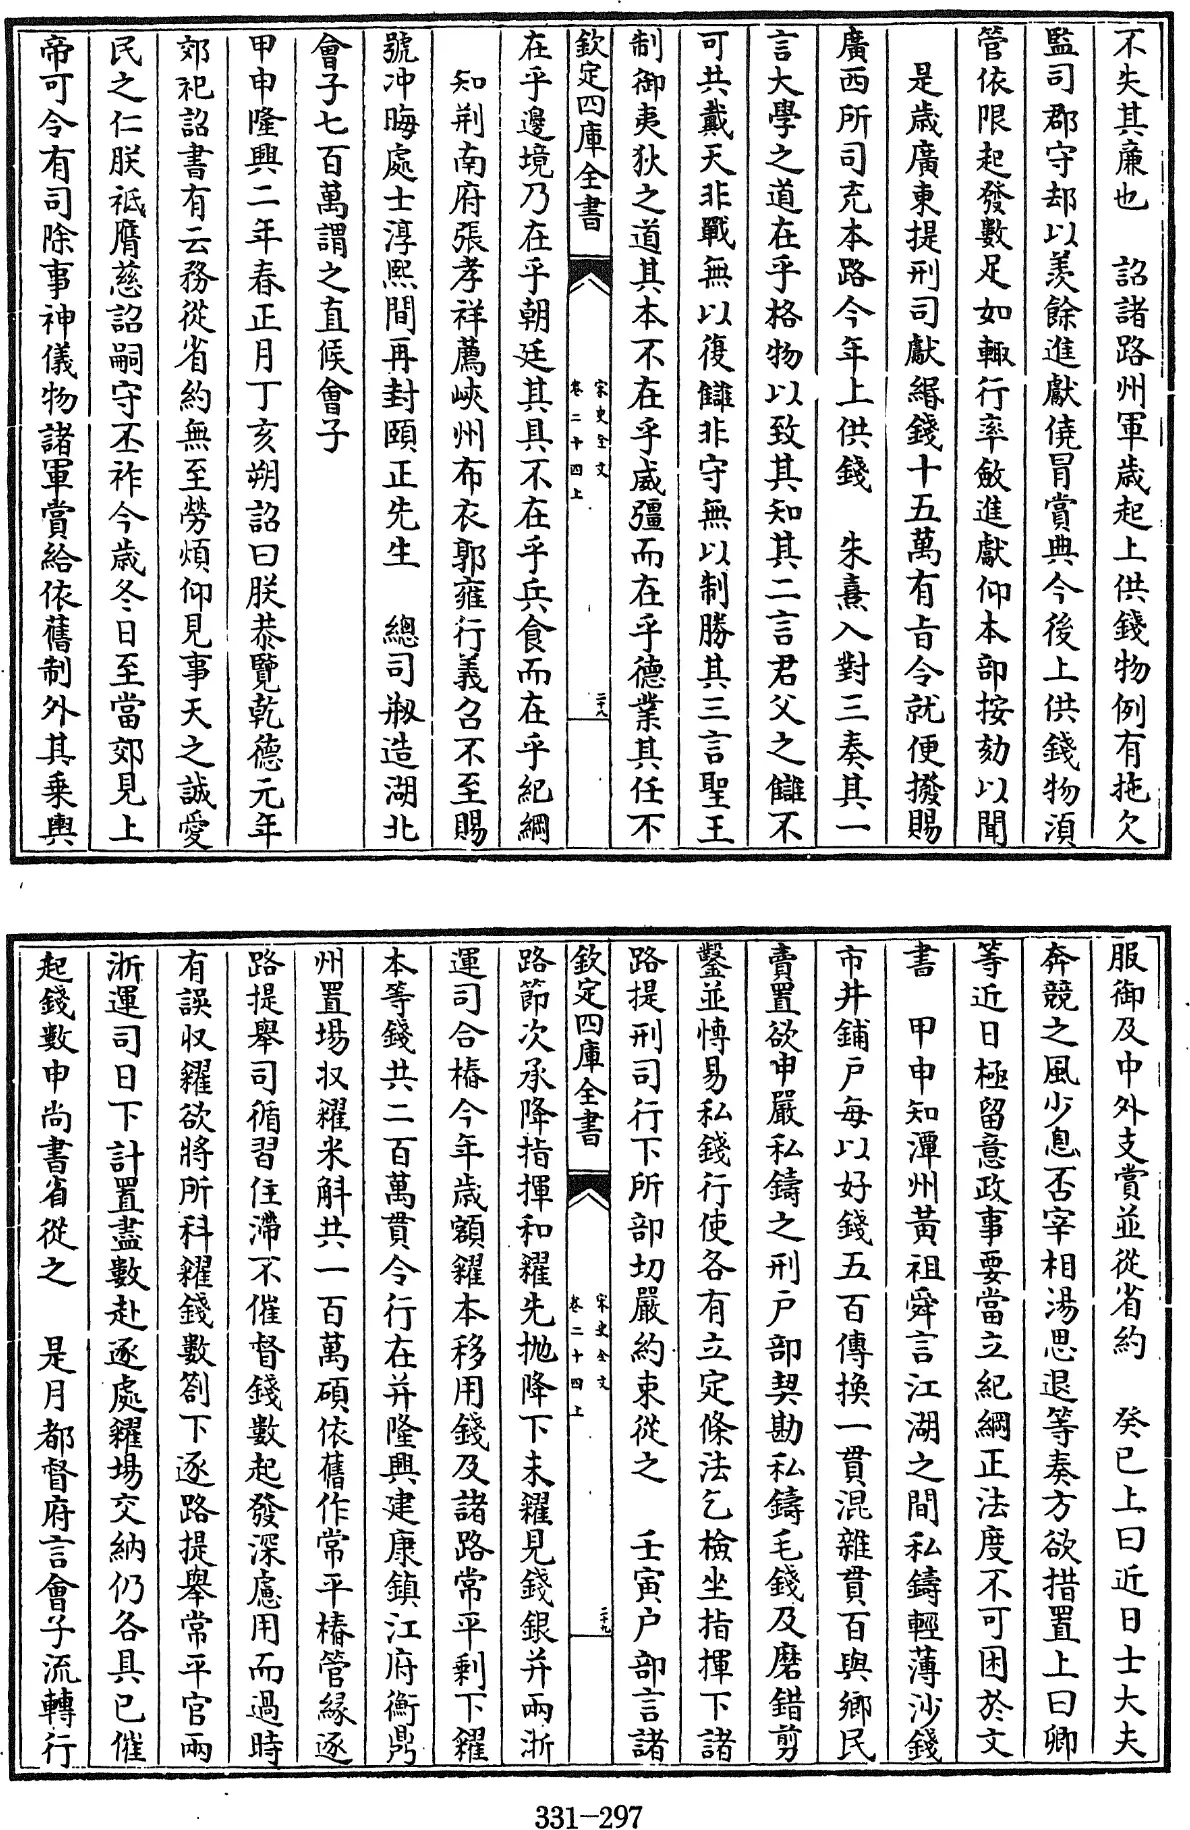 不失其廉也　詔諸路州軍歳起上供錢物例有拖欠
監司郡守却以羨餘進獻僥冒賞典今後上供錢物湏
管依限起發數足如輙行率斂進獻仰本部按劾以聞
是歳廣東提刑司獻緡錢十五萬有旨令就便撥賜
廣西所司充本路今年上供錢　朱熹入對三奏其一
言大學之道在乎格物以致其知其二言君父之讎不
可共戴天非戰無以復讎非守無以制勝其三言聖王
制御夷狄之道其本不在乎威彊而在乎德業其任不
欽定四庫全書　宋史全文卷二十四上　二十八
在乎邊境乃在乎朝廷其具不在乎兵食而在乎紀綱
知荆南府張孝祥薦峽州布衣郭雍行義召不至賜
號沖晦處士淳熙間再封頤正先生　總司措造湖北
會子七百萬謂之直候會子
甲申隆興二年春正月丁亥朔詔曰朕恭覽乾德元年
郊祀詔書有云務從省約無至勞煩仰見事天之誠愛
民之仁朕祗膺慈詔嗣守丕祚今歳冬日至當郊見上
帝可令有司除事神儀物諸軍賞給依舊制外其乗輿
服御及中外支賞並從省約　癸巳上曰近日士大夫
奔競之風少息否宰相湯思退等奏方欲措置上曰卿
等近日極留意政事要當立紀綱正法度不可困於文
書　甲申知潭州黃祖舜言江湖之間私鑄輕薄沙錢
市井鋪户每以好錢五百傳換一貫混雜貫百與鄉民
賣置欲申嚴私鑄之刑户部契勘私鑄毛錢及磨錯剪
鑿並博易私錢行使各有立定條法乞檢坐指揮下諸
路提刑司行下所部切嚴約束從之　壬寅户部言諸
欽定四庫全書　宋史全文卷二十四上　二十九
路節次承降指揮和糴先抛降下未糴見錢銀并兩浙
運司合樁今年歳額糴本移用錢及諸路常平剩下糴
本等錢共二百萬貫令行在并隆興建康鎮江府衡鼎
州置場収糴米斛共一百萬碩依舊作常平樁管縁逐
路提舉司循習住滯不催督錢數起發深慮用而過時
有誤収糴欲將所科糴錢數劄下逐路提舉常平官兩
浙運司日下計置盡數赴逐處糴場交納仍各具已催
起錢數申尚書省從之　是月都督府言會子流轉行
331—297